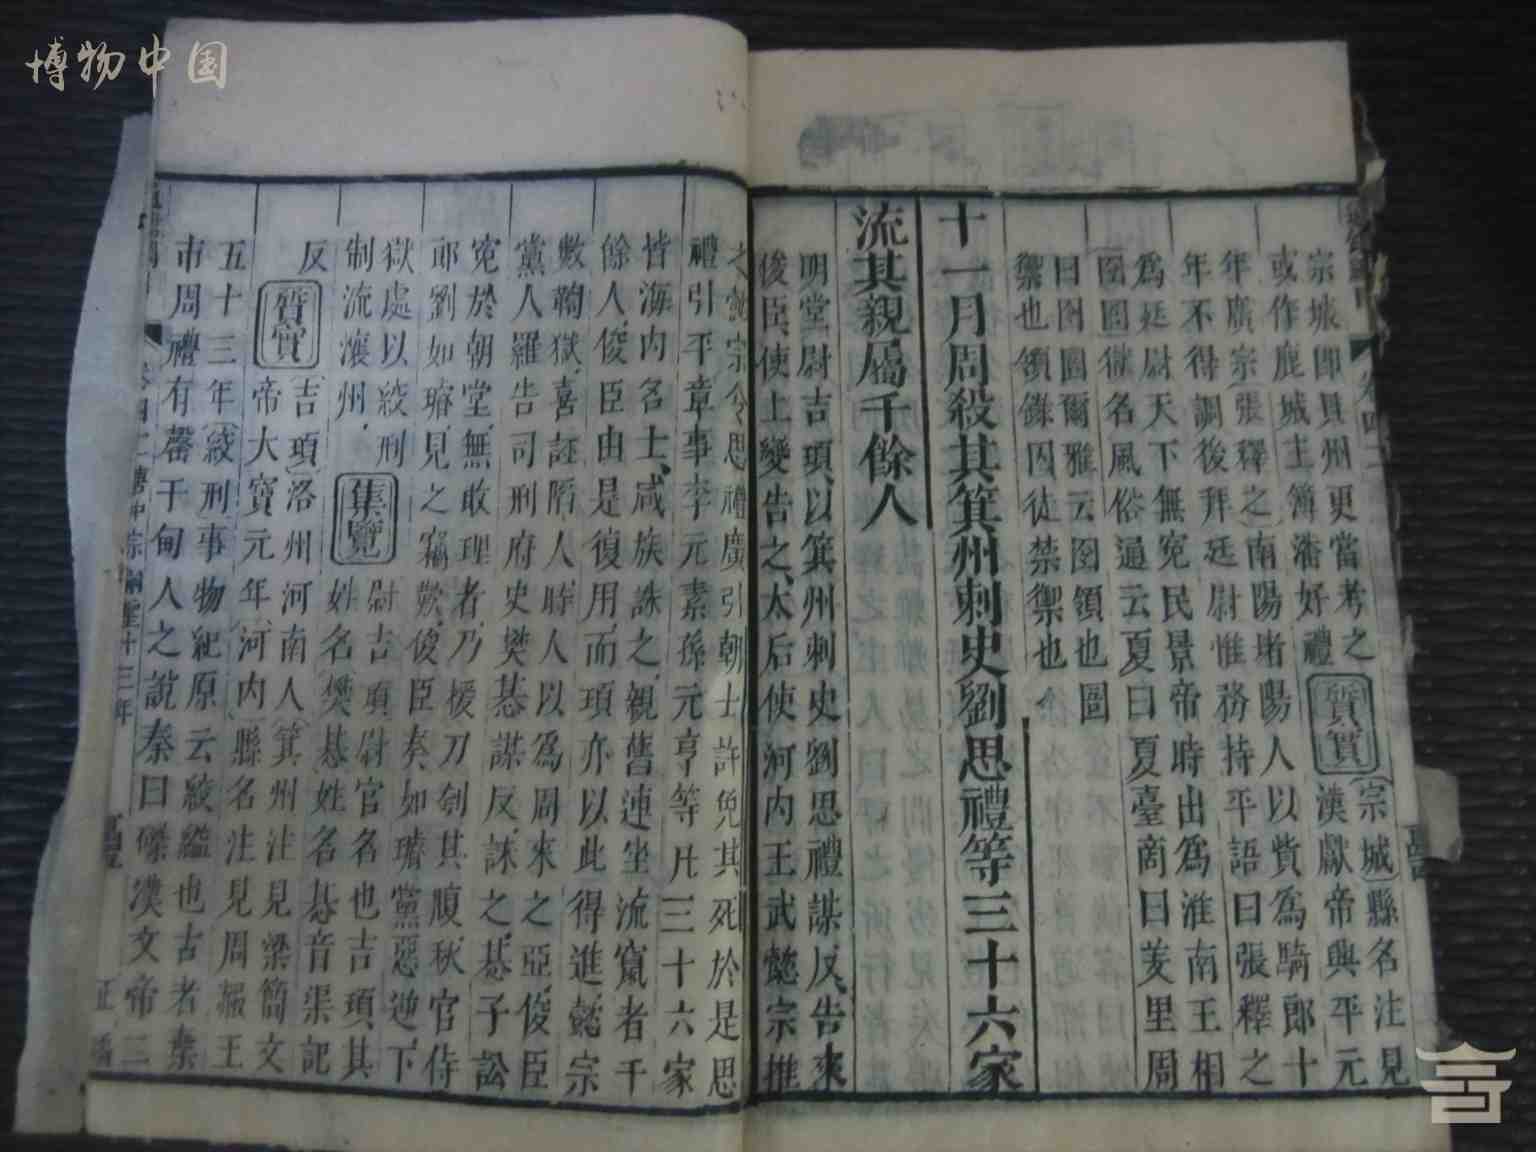 博物中国
宗城即貝州更當考之 質實 (宗城)縣名注見
或作鹿城主簿潘好禮 漢獻帝興平元
年廣宗(張釋之)南陽堵陽人以貲為騎郎十
年不得調後拜廷尉惟務持平語曰張釋之
為廷尉天下無冤民景帝時出為淮南王相
囹圄獄名風俗通云夏曰夏臺商曰羑里周
曰囹圄爾雅云囹領也圄
禦也領錄囚徒禁禦也
十一月周殺其箕州刺史劉思禮等三十六家
流其親屬千餘人
明堂尉吉頊以箕州刺史劉思禮謀反告來
俊臣使上變告之太后使河内王武懿宗推
之懿宗令思禮廣引朝士許免其死於是思
禮引平章事李元素孫元亨等凡三十六家
皆海内名士咸族誅之親舊連坐流竄者千
餘人俊臣由是復用而頊亦以此得進懿宗
數鞫獄喜誣陷人時人以為周來之亞俊臣
黨人羅告司刑府史樊惎謀反誅之惎子訟
冤於朝堂無敢理者乃援刀刳其腹秋官侍
郎劉如璿見之竊歎俊臣奏如璿黨惡逆下
獄處以絞刑
制流瀼州 集覽 尉吉頊尉官名也吉頊其
姓名(樊惎)姓名惎音渠記
反 質實 (吉頊)洛州河南人(箕州)注見梁簡文
帝大寶元年(河内)縣名注見周赧王
五十三年(絞刑)事物紀原云絞縊也古者秦
市周禮有罄于甸人之說秦曰磔漢文帝三